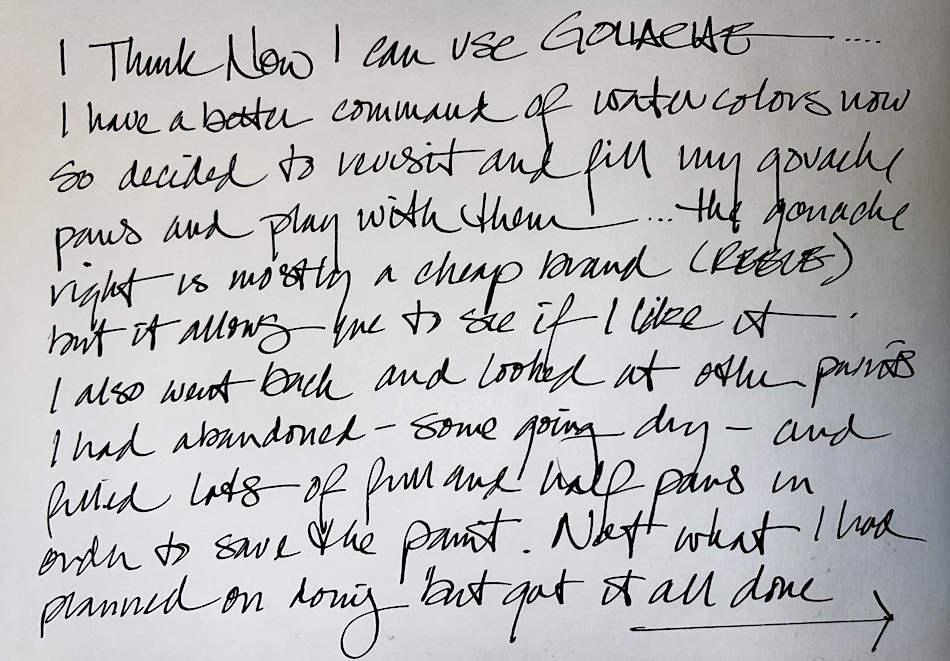 I Think Now I can use GOUACHE ....
I have a better command of watercolors now
so decided to revisit and fill my gouache
pans and play with them ... the gouache
right is mostly a cheap brand (REEVE)
but it allows me to see if I like it.
I also went back and looked at other paints
I had abandoned - some going dry - and
filled lots of full and half pans in
order to save the paint. Not what I had
planned on doing but got it all done →